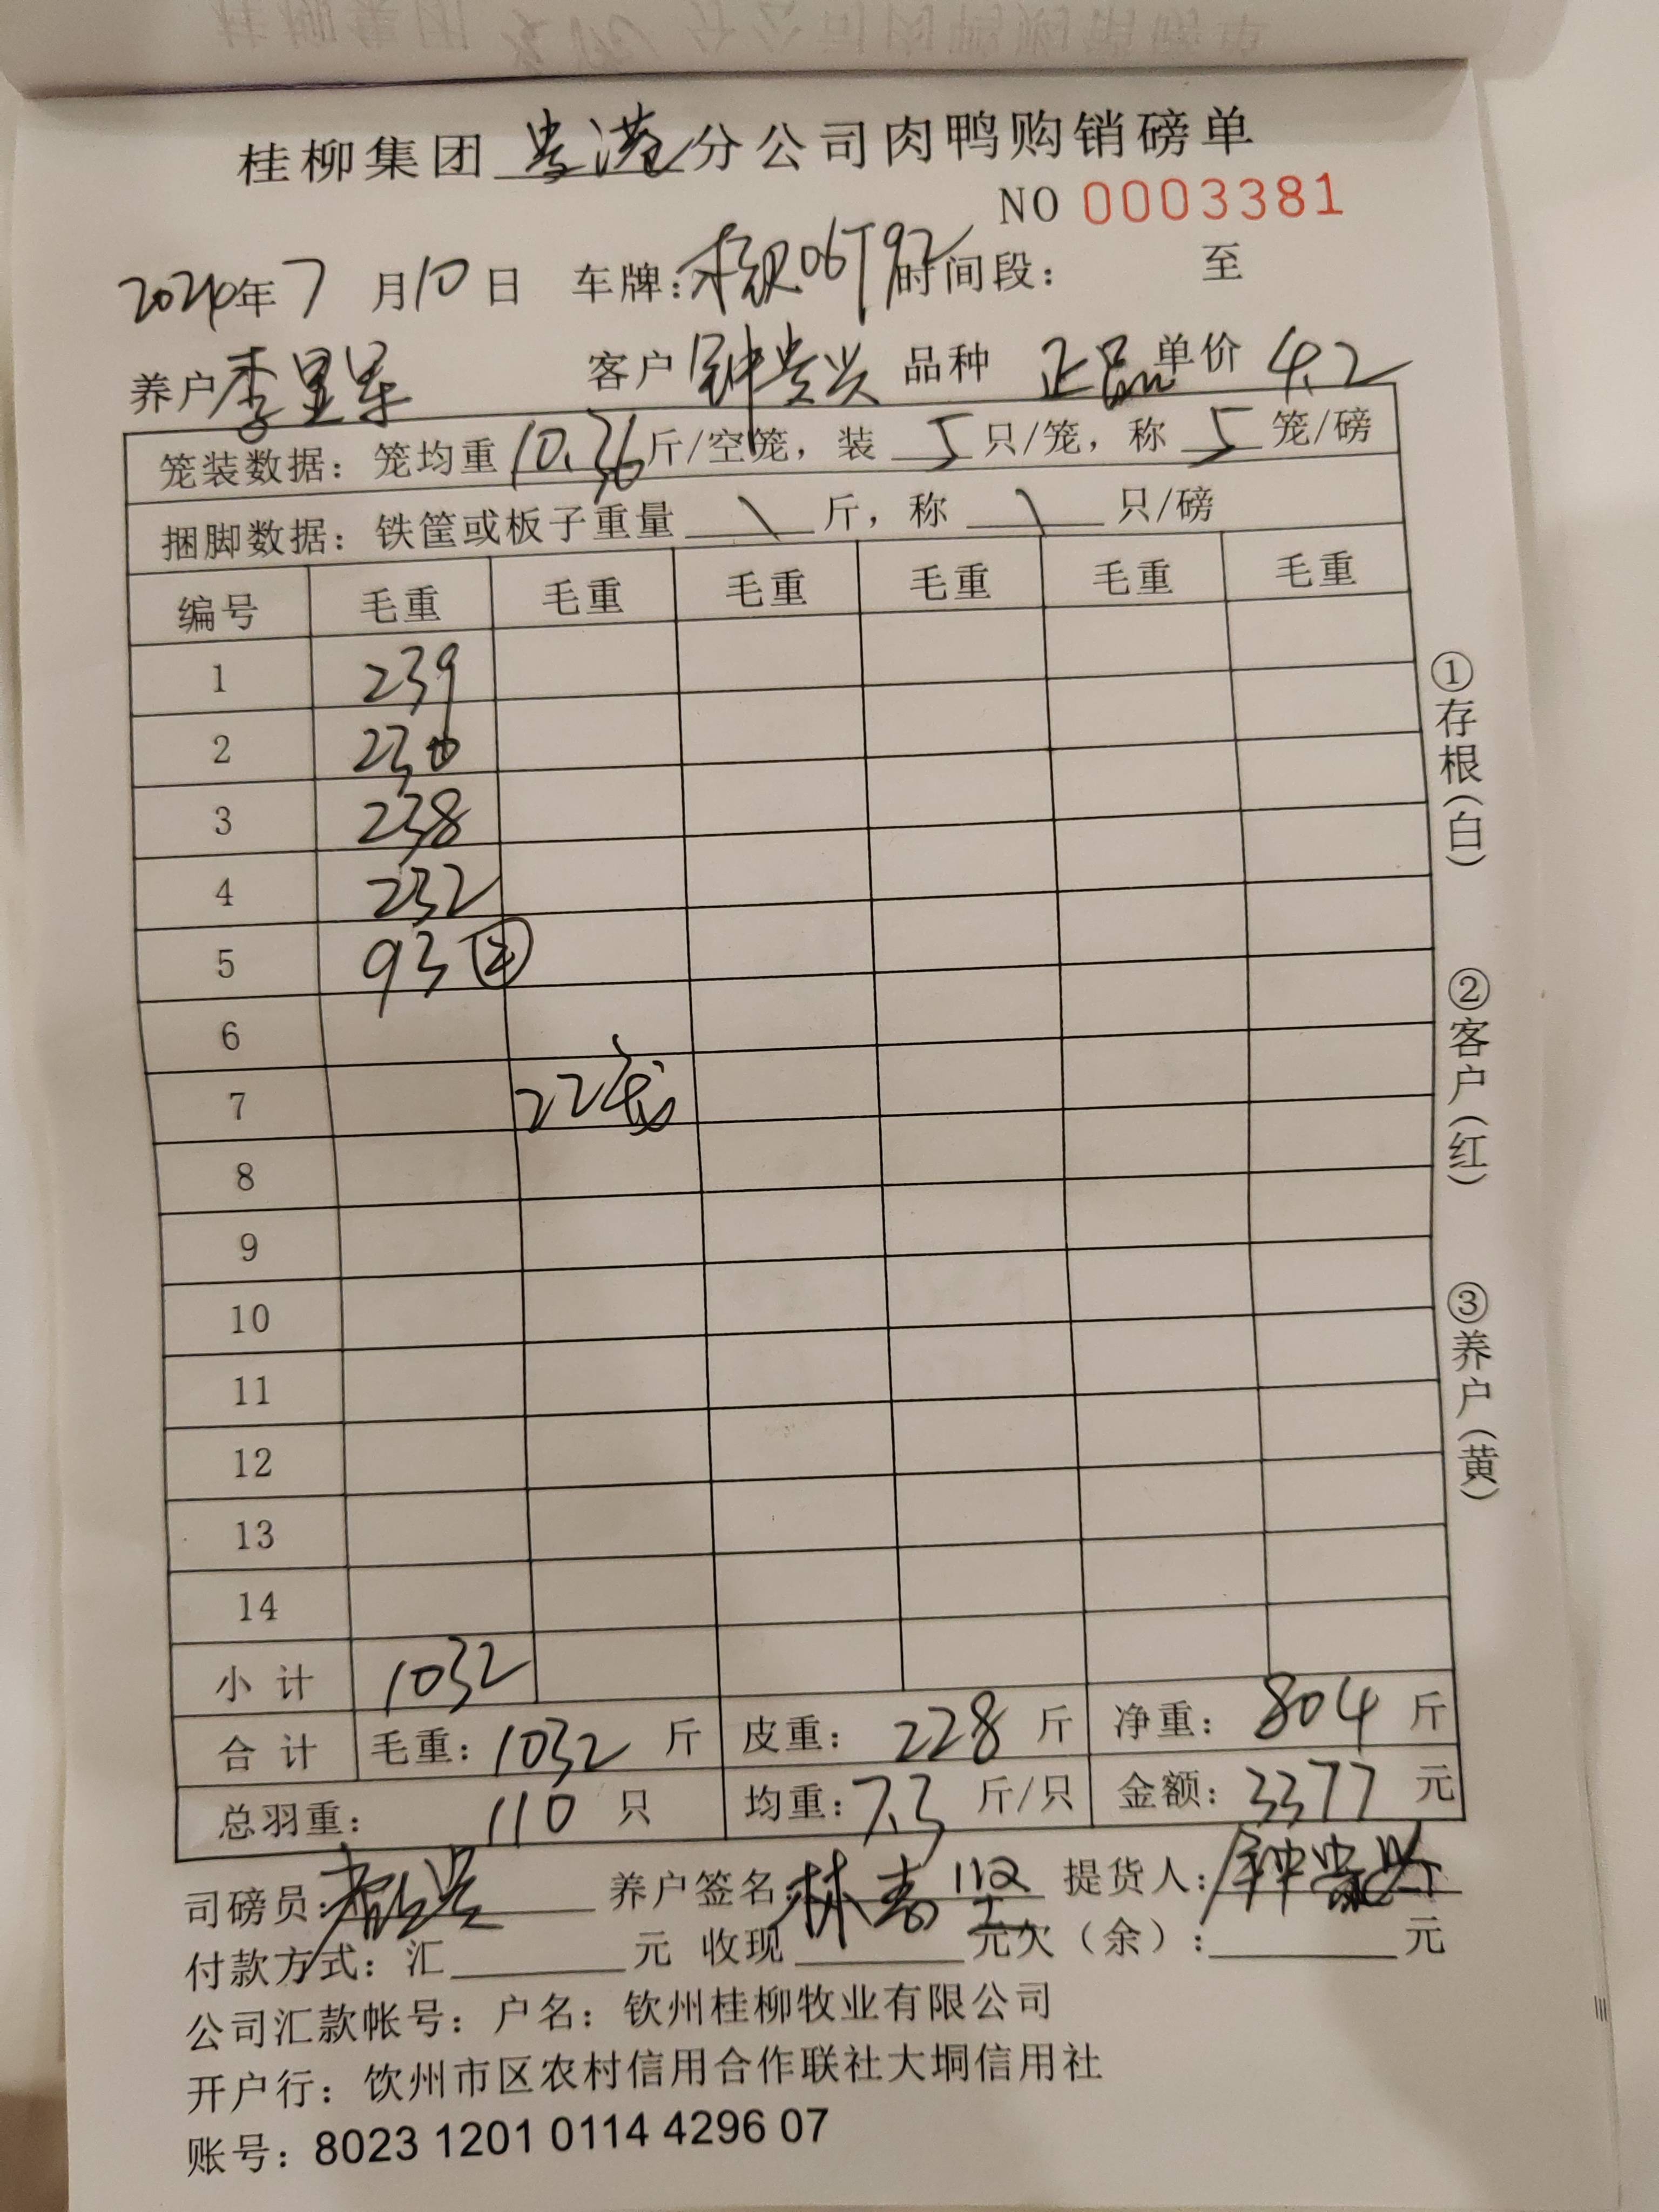 桂柳集团贵港分公司肉鸭购销磅单
NO 0003381
2024年7月10日 车牌:桂R06T92 时间段: 至
养户李星军 客户钟贵兴 品种 正品 单价 4.2
笼装数据: 笼均重10.36斤/空笼, 装 5 只/笼, 称 5 笼/磅
捆脚数据: 铁筐或板子重量 \ 斤, 称 \ 只/磅
编号 毛重 毛重 毛重 毛重 毛重 毛重
1 239
2 230
3 238
4 232
5 93 ②
6
7 22笼
8
9
10
11
12
13
14
小计 1032
合计 毛重: 1032 斤 皮重: 228 斤 净重: 804 斤
总羽重: 110 只 均重: 7.3 斤/只 金额: 3377 元
司磅员: 养户签名: 林寿坚 提货人: 钟贵兴
付款方式: 汇 元 收现 元欠(余): 元
公司汇款帐号: 户名: 钦州桂柳牧业有限公司
开户行: 钦州市区农村信用合作联社大垌信用社
账号: 8023 1201 0114 4296 07
①存根(白)
②客户(红)
③养户(黄)